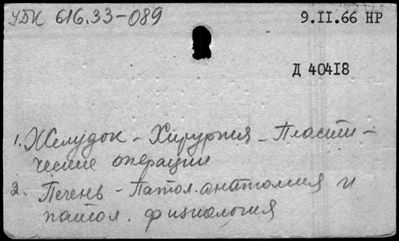 УДК 616.33-089
9.II.66 НР
Д 40418
1. Желудок - Хирургия - Пласти-
ческие операции
2. Печень - Патол. анатомия и
патол. физиология